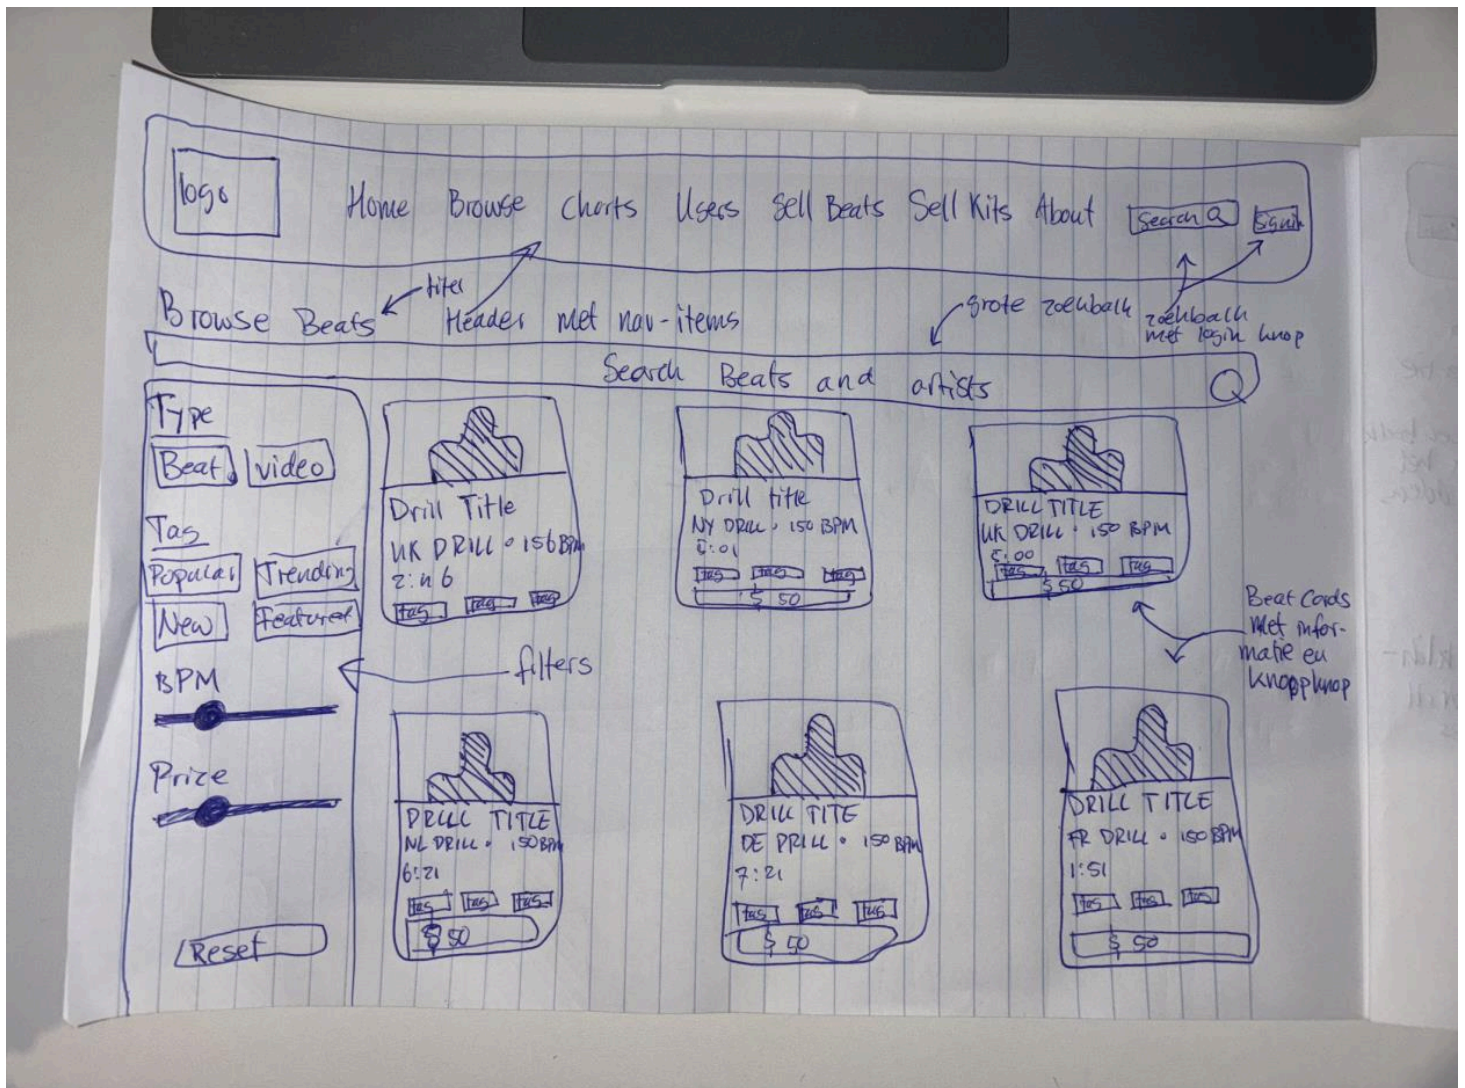 logo
Home Browse Charts Users Sell Beats Sell Kits About Search
Browse Beats
titel
Header met nav-items
grote zoekbalk
zoekbalk
met login knop
Search Beats and artists
Type
Beat video
Tag
Popular Trending
New Featured
BPM
Prize
Reset
filters
Drill Title
UK DRILL • 156 BPM
tag tag tag
Drill title
NY DRILL • 150 BPM
tag tag tag
$ 50
DRILL TITLE
UK DRILL • 150 BPM
tag tag tag
$ 50
Beat Cards
met infor-
matie en
DRILL TITLE
NL DRILL • 150 BPM
6:21
tag tag tag
$ 50
DRILL TITE
DE DRILL • 150 BPM
7:21
tag tag tag
$ 50
DRILL TITLE
FR DRILL • 150 BPM
1:51
tag tag tag
$ 50